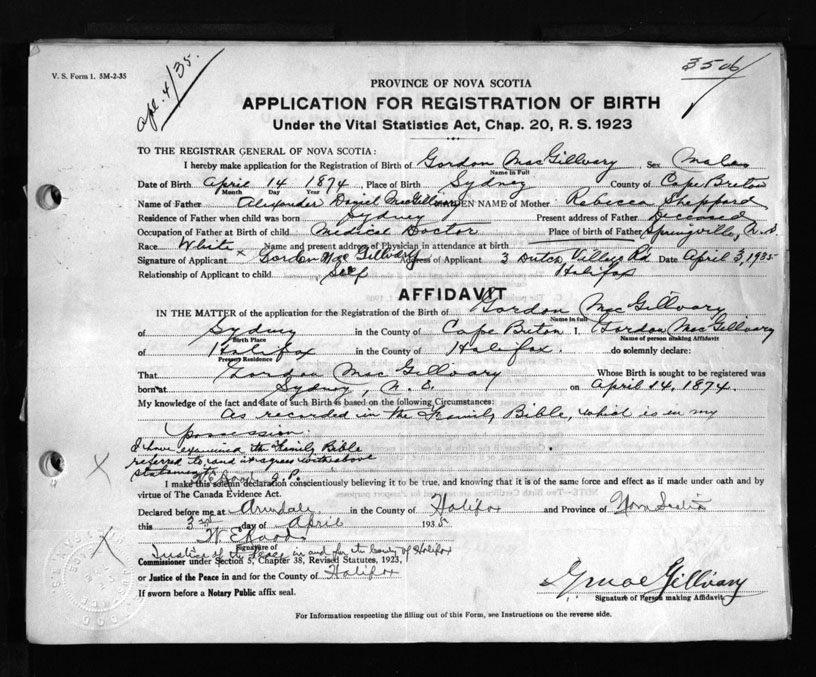 V. S. Form 1. 5M-2-35
Apl. 4/35.
3506
PROVINCE OF NOVA SCOTIA
APPLICATION FOR REGISTRATION OF BIRTH
Under the Vital Statistics Act, Chap. 20, R. S. 1923
TO THE REGISTRAR GENERAL OF NOVA SCOTIA:
I hereby make application for the Registration of Birth of Gordon MacGillvary Sex Male
Name in Full
Date of Birth April 14 1874, Place of Birth Sydney County of Cape Breton
Month Day Year
Name of Father Alexander Daniel MacGillvary MAIDEN NAME of Mother Rebecca Sheppard
Residence of Father when child was born Sydney Present address of Father Deceased
Occupation of Father at Birth of child Medical Doctor Place of birth of Father Springville, N.S.
Race White Name and present address of Physician in attendance at birth
Signature of Applicant x Gordon MacGillvary Address of Applicant 3 Dutch Village Rd Date April 3, 1935
Relationship of Applicant to child Self Halifax
AFFIDAVIT
IN THE MATTER of the application for the Registration of the Birth of Gordon MacGillvary
Name in full
of Sydney in the County of Cape Breton I, Gordon MacGillvary
Birth Place Name of person making Affidavit
of Halifax in the County of Halifax. do solemnly declare:
Present Residence
That Gordon MacGillvary Whose Birth is sought to be registered was
born at Sydney, N.S. on April 14, 1874.
My knowledge of the fact and date of such Birth is based on the following Circumstances:
As recorded in the Family Bible, which is in my
possession.
I have examined the Family Bible
referred to and it agrees with above
statement J. P.
I make this solemn declaration conscientiously believing it to be true, and knowing that it is of the same force and effect as if made under oath and by
virtue of The Canada Evidence Act.
Declared before me at Armdale in the County of Halifax and Province of Nova Scotia
this 3rd day of April 1935
Signature of
Justice of the Peace in and for the County of Halifax
Commissioner under Section 5, Chapter 38, Revised Statutes, 1923,
or Justice of the Peace in and for the County of Halifax
If sworn before a Notary Public affix seal.
G MacGillvary
Signature of Person making Affidavit
For Information respecting the filling out of this Form, see Instructions on the reverse side.